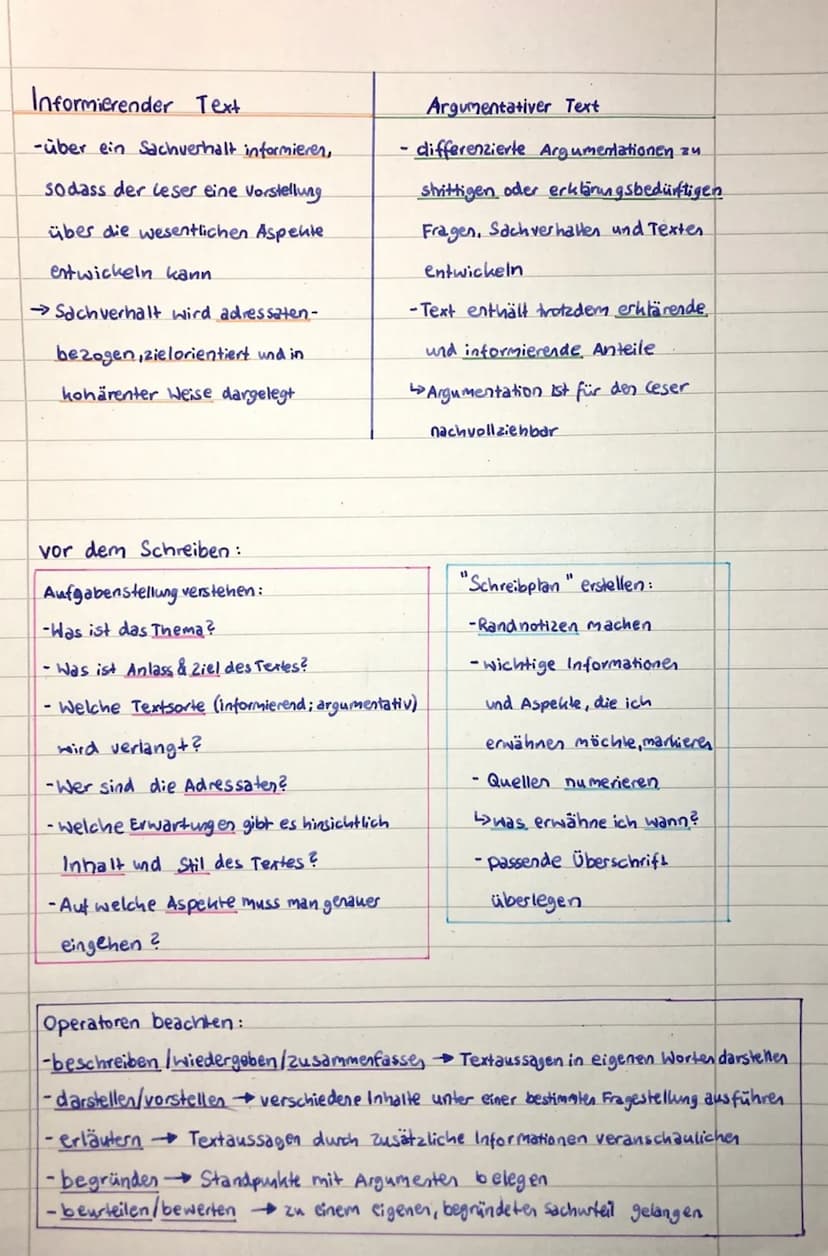 Informierender Text
-über ein Sachverhalt informieren,
sodass der Leser eine Vorstellung
über die wesentlichen Aspekte
entwickeln kann
→ Sachverhalt wird adressaten-
bezogen, zielorientiert und in
kohärenter Weise dargelegt
Argumentativer Text
- differenzierte Argumentationen zu
strittigen oder erklärungsbedürftigen
Fragen, Sachverhalten und Texten
entwickeln
- Text enthält trotzdem erklärende
und informierende Anteile
↳ Argumentation ist für den Leser
nachvollziehbar
vor dem Schreiben:
Aufgabenstellung verstehen:
-Was ist das Thema?
- Was ist Anlass & Ziel des Textes?
- Welche Textsorte (informierend; argumentativ)
wird verlangt?
-Wer sind die Adressaten?
- Welche Erwartungen gibt es hinsichtlich
Inhalt und Stil des Textes?
- Auf welche Aspekte muss man genauer
eingehen?
"Schreibplan" erstellen:
- Randnotizen machen
- wichtige Informationen
und Aspekte, die ich
erwähnen möchte, markieren
- Quellen numerieren
↳ was erwähne ich wann?
- passende Überschrift
überlegen
Operatoren beachten:
-beschreiben/wiedergeben/zusammenfassen → Textaussagen in eigenen Worten darstellen
- darstellen/vorstellen → verschiedene Inhalte unter einer bestimmten Fragestellung ausführen
- erläutern → Textaussagen durch zusätzliche Informationen veranschaulichen
- begründen → Standpunkte mit Argumenten belegen
- beurteilen/bewerten → zu einem eigenen, begründeten Sachurteil gelangen